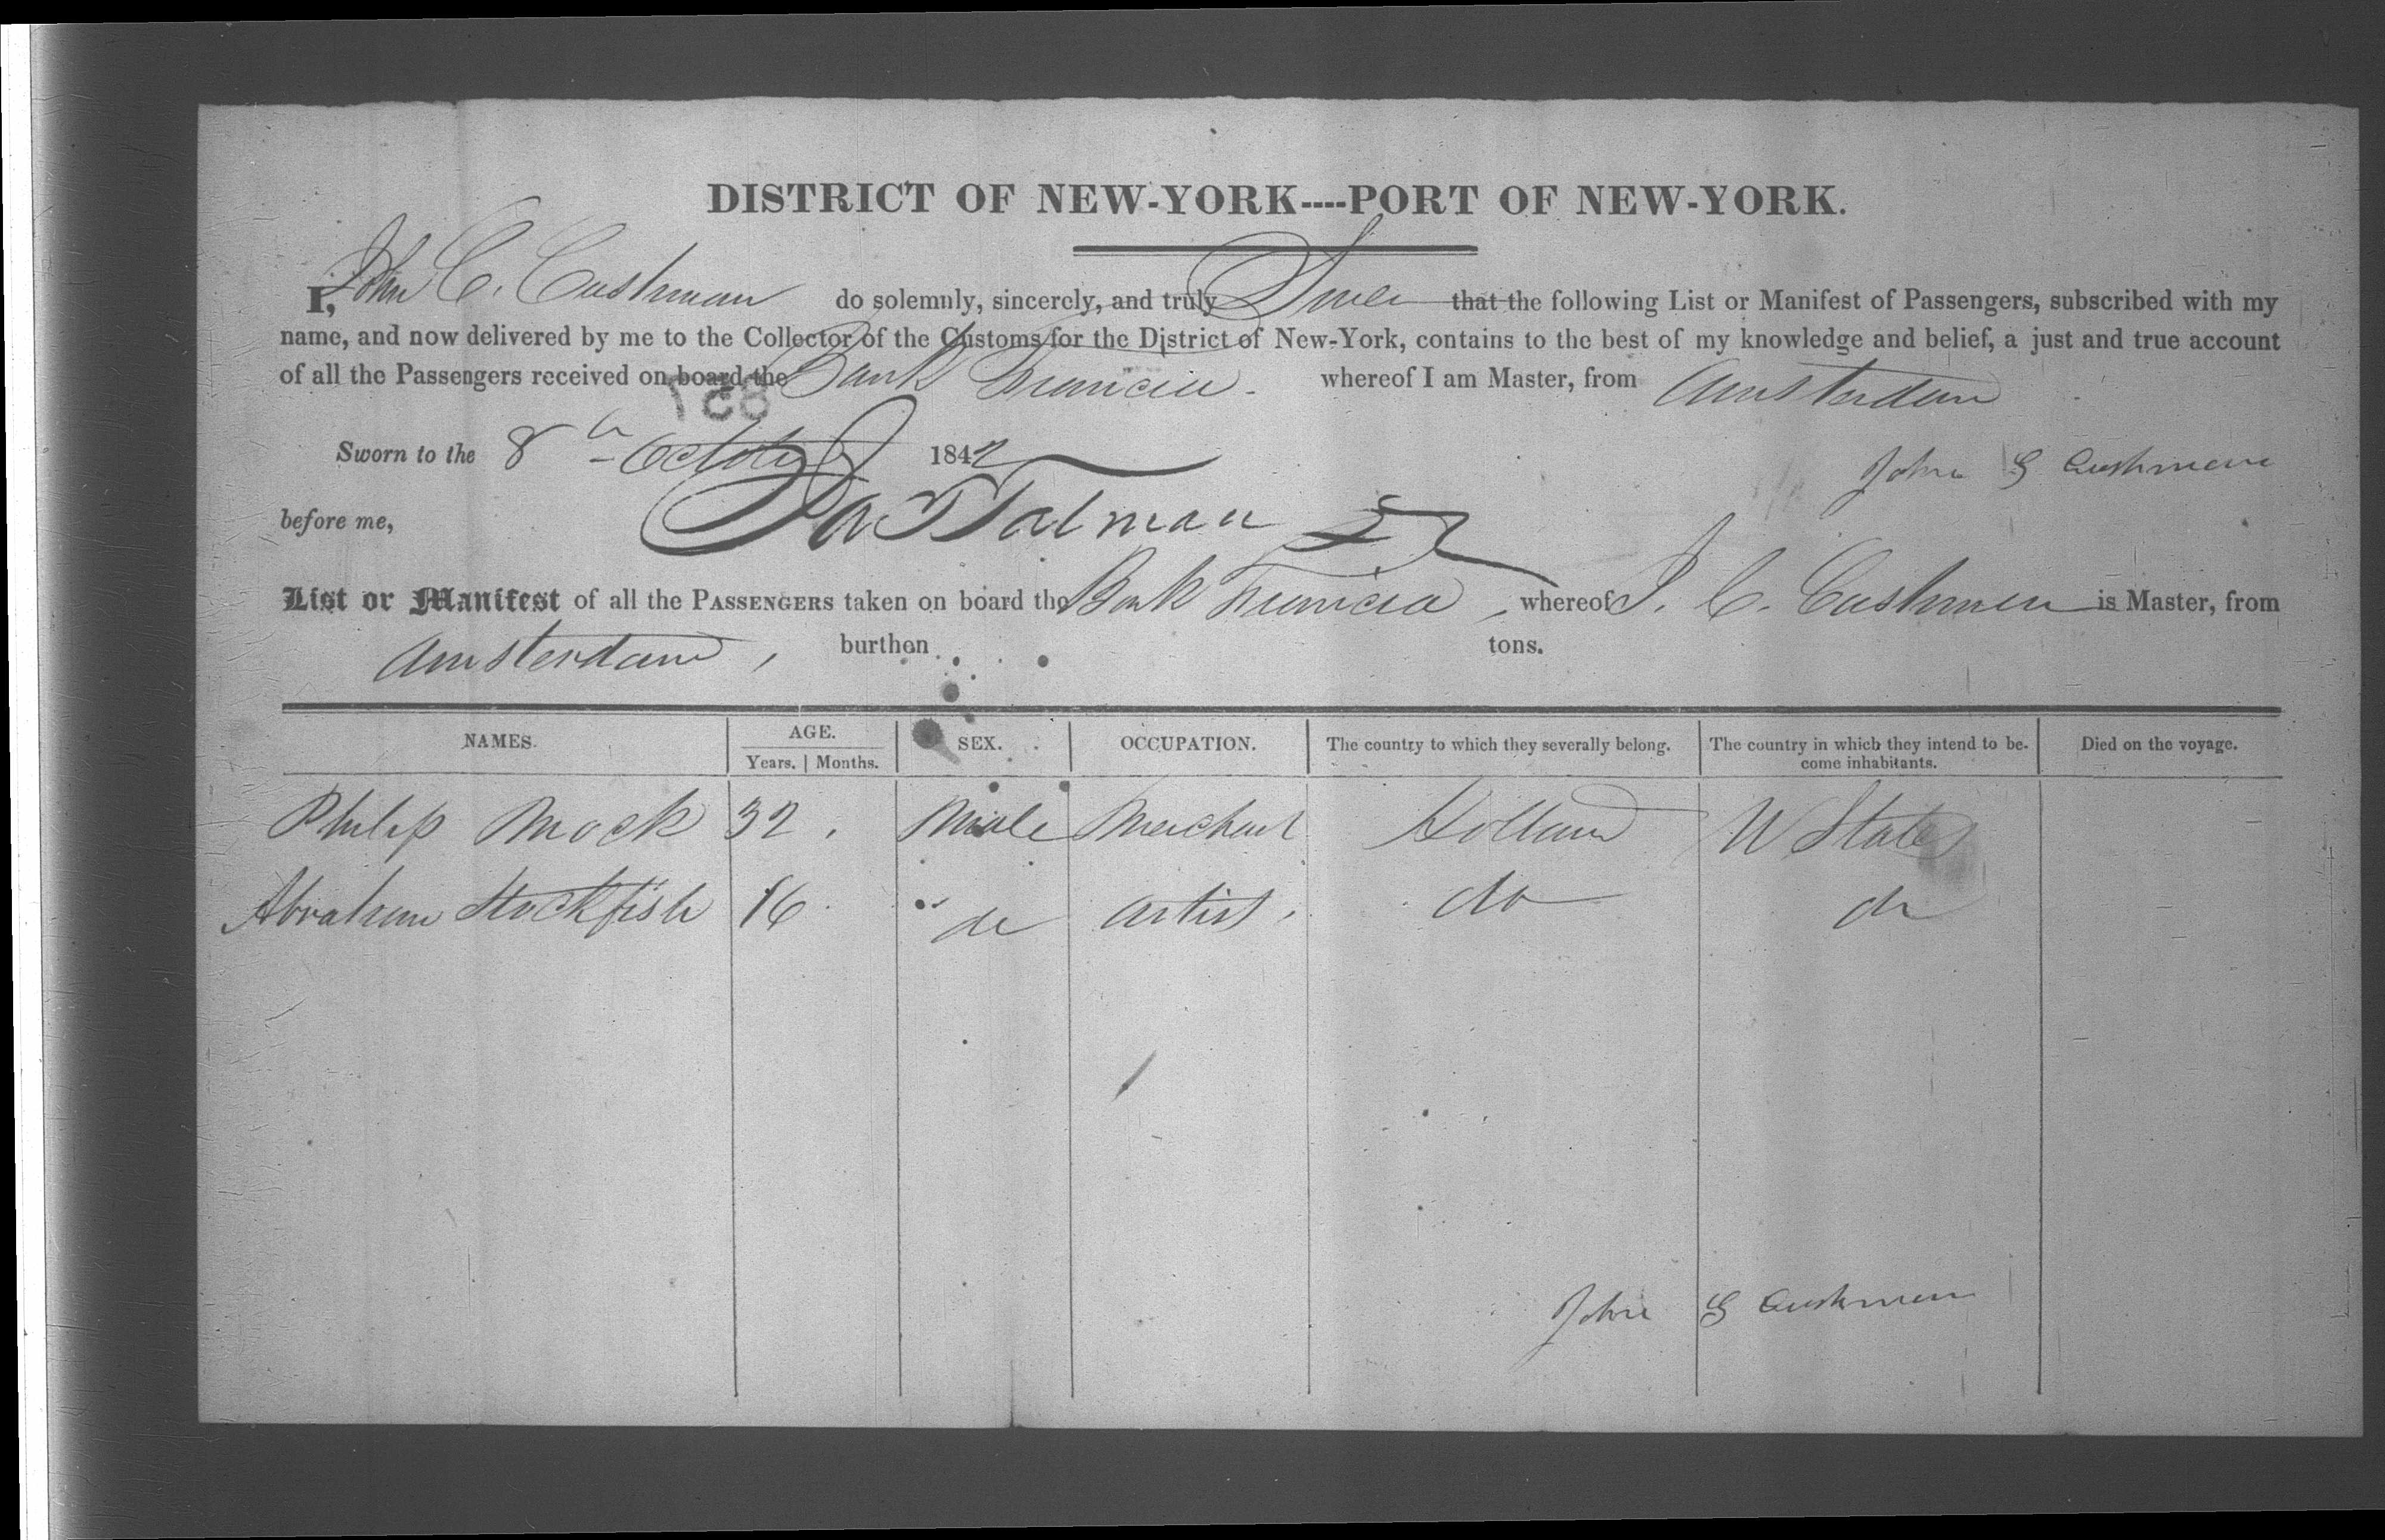 DISTRICT OF NEW-YORK----PORT OF NEW-YORK.
I, John C. Cushman do solemnly, sincerely, and truly Swear that the following List or Manifest of Passengers, subscribed with my
name, and now delivered by me to the Collector of the Customs for the District of New-York, contains to the best of my knowledge and belief, a just and true account
of all the Passengers received on board the Bark whereof I am Master, from Amsterdam
Sworn to the 8th October 1842 John G Cushman
before me, Talman
List or Manifest of all the PASSENGERS taken on board the Bark whereof J. C. Cushman is Master, from
Amsterdam, burthen tons.
NAMES. AGE. Years. | Months. SEX. OCCUPATION. The country to which they severally belong. The country in which they intend to become inhabitants. Died on the voyage.
Philip Mock 32. Male Merchant Holland U States
Abraham Stockfish 16 do artist. do do
John G Cushman